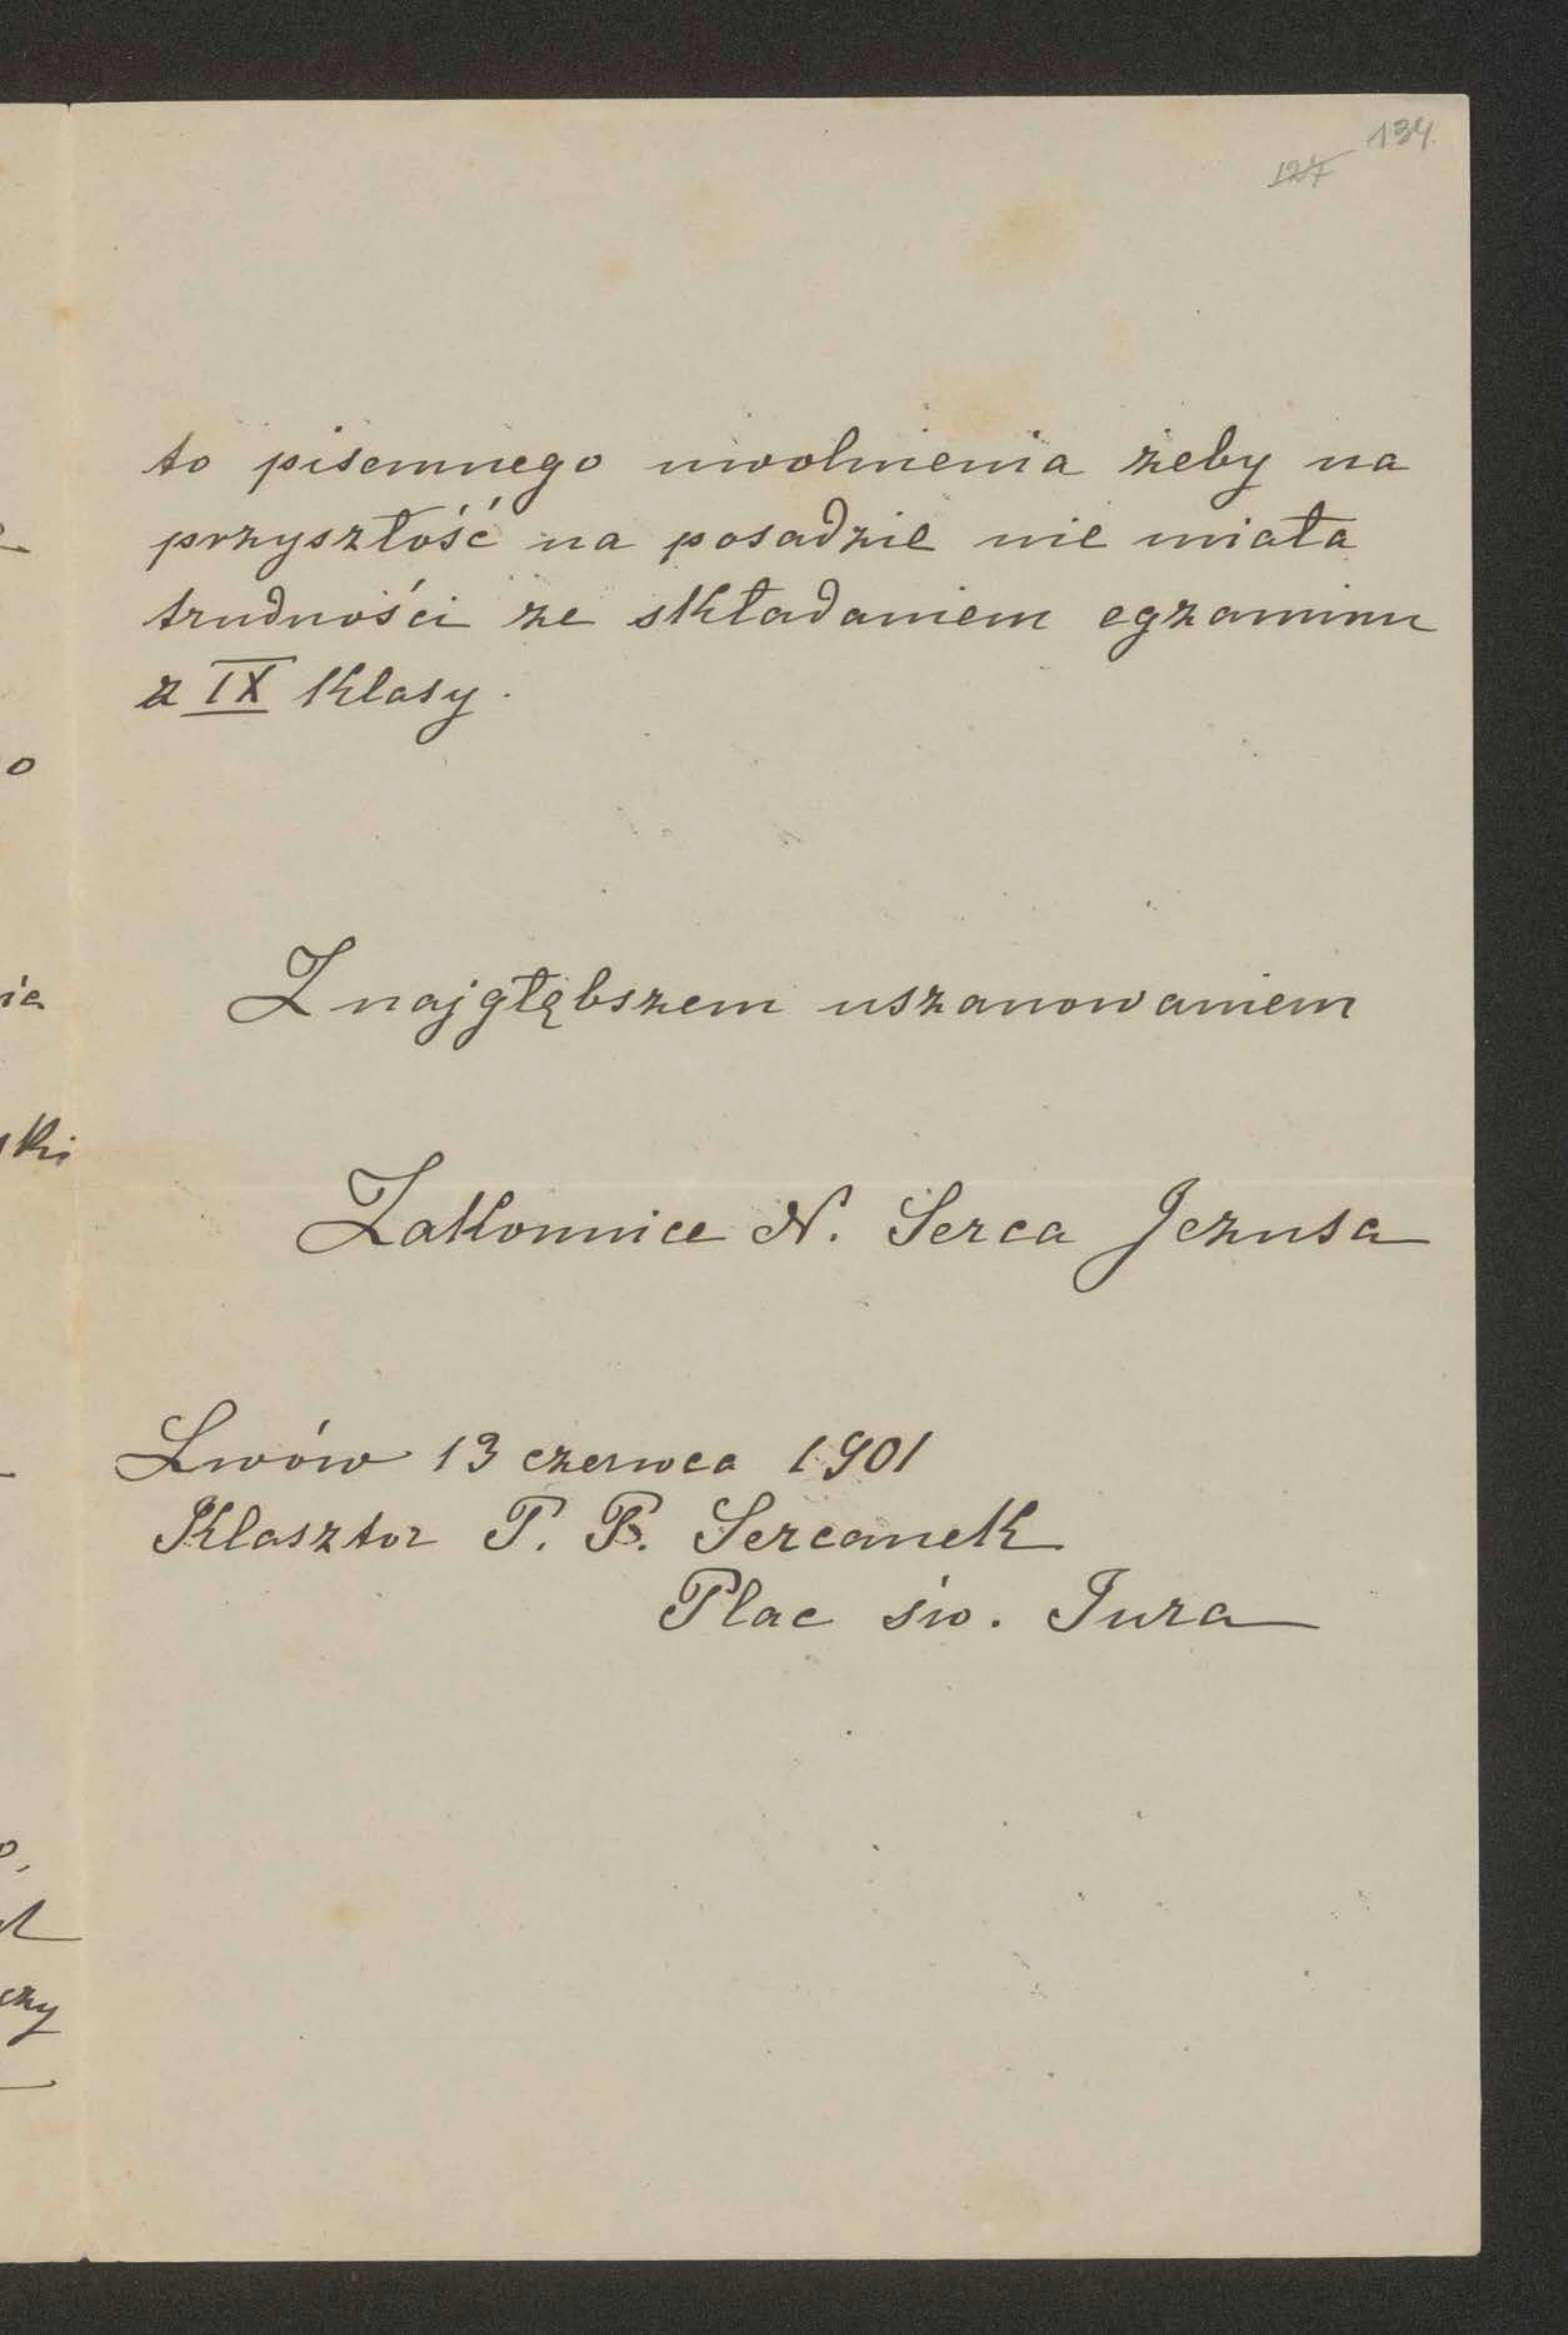 134.
127
to pisemnego uwolnienia żeby na
przyszłość na posadzie nie miała
trudności ze składaniem egzaminu
z IX klasy.
Z najgłębszem uszanowaniem
Zakonnice N. Serca Jezusa
Lwów 13 czerwca 1901
Klasztor P. P. Sercanek
Plac św. Jura